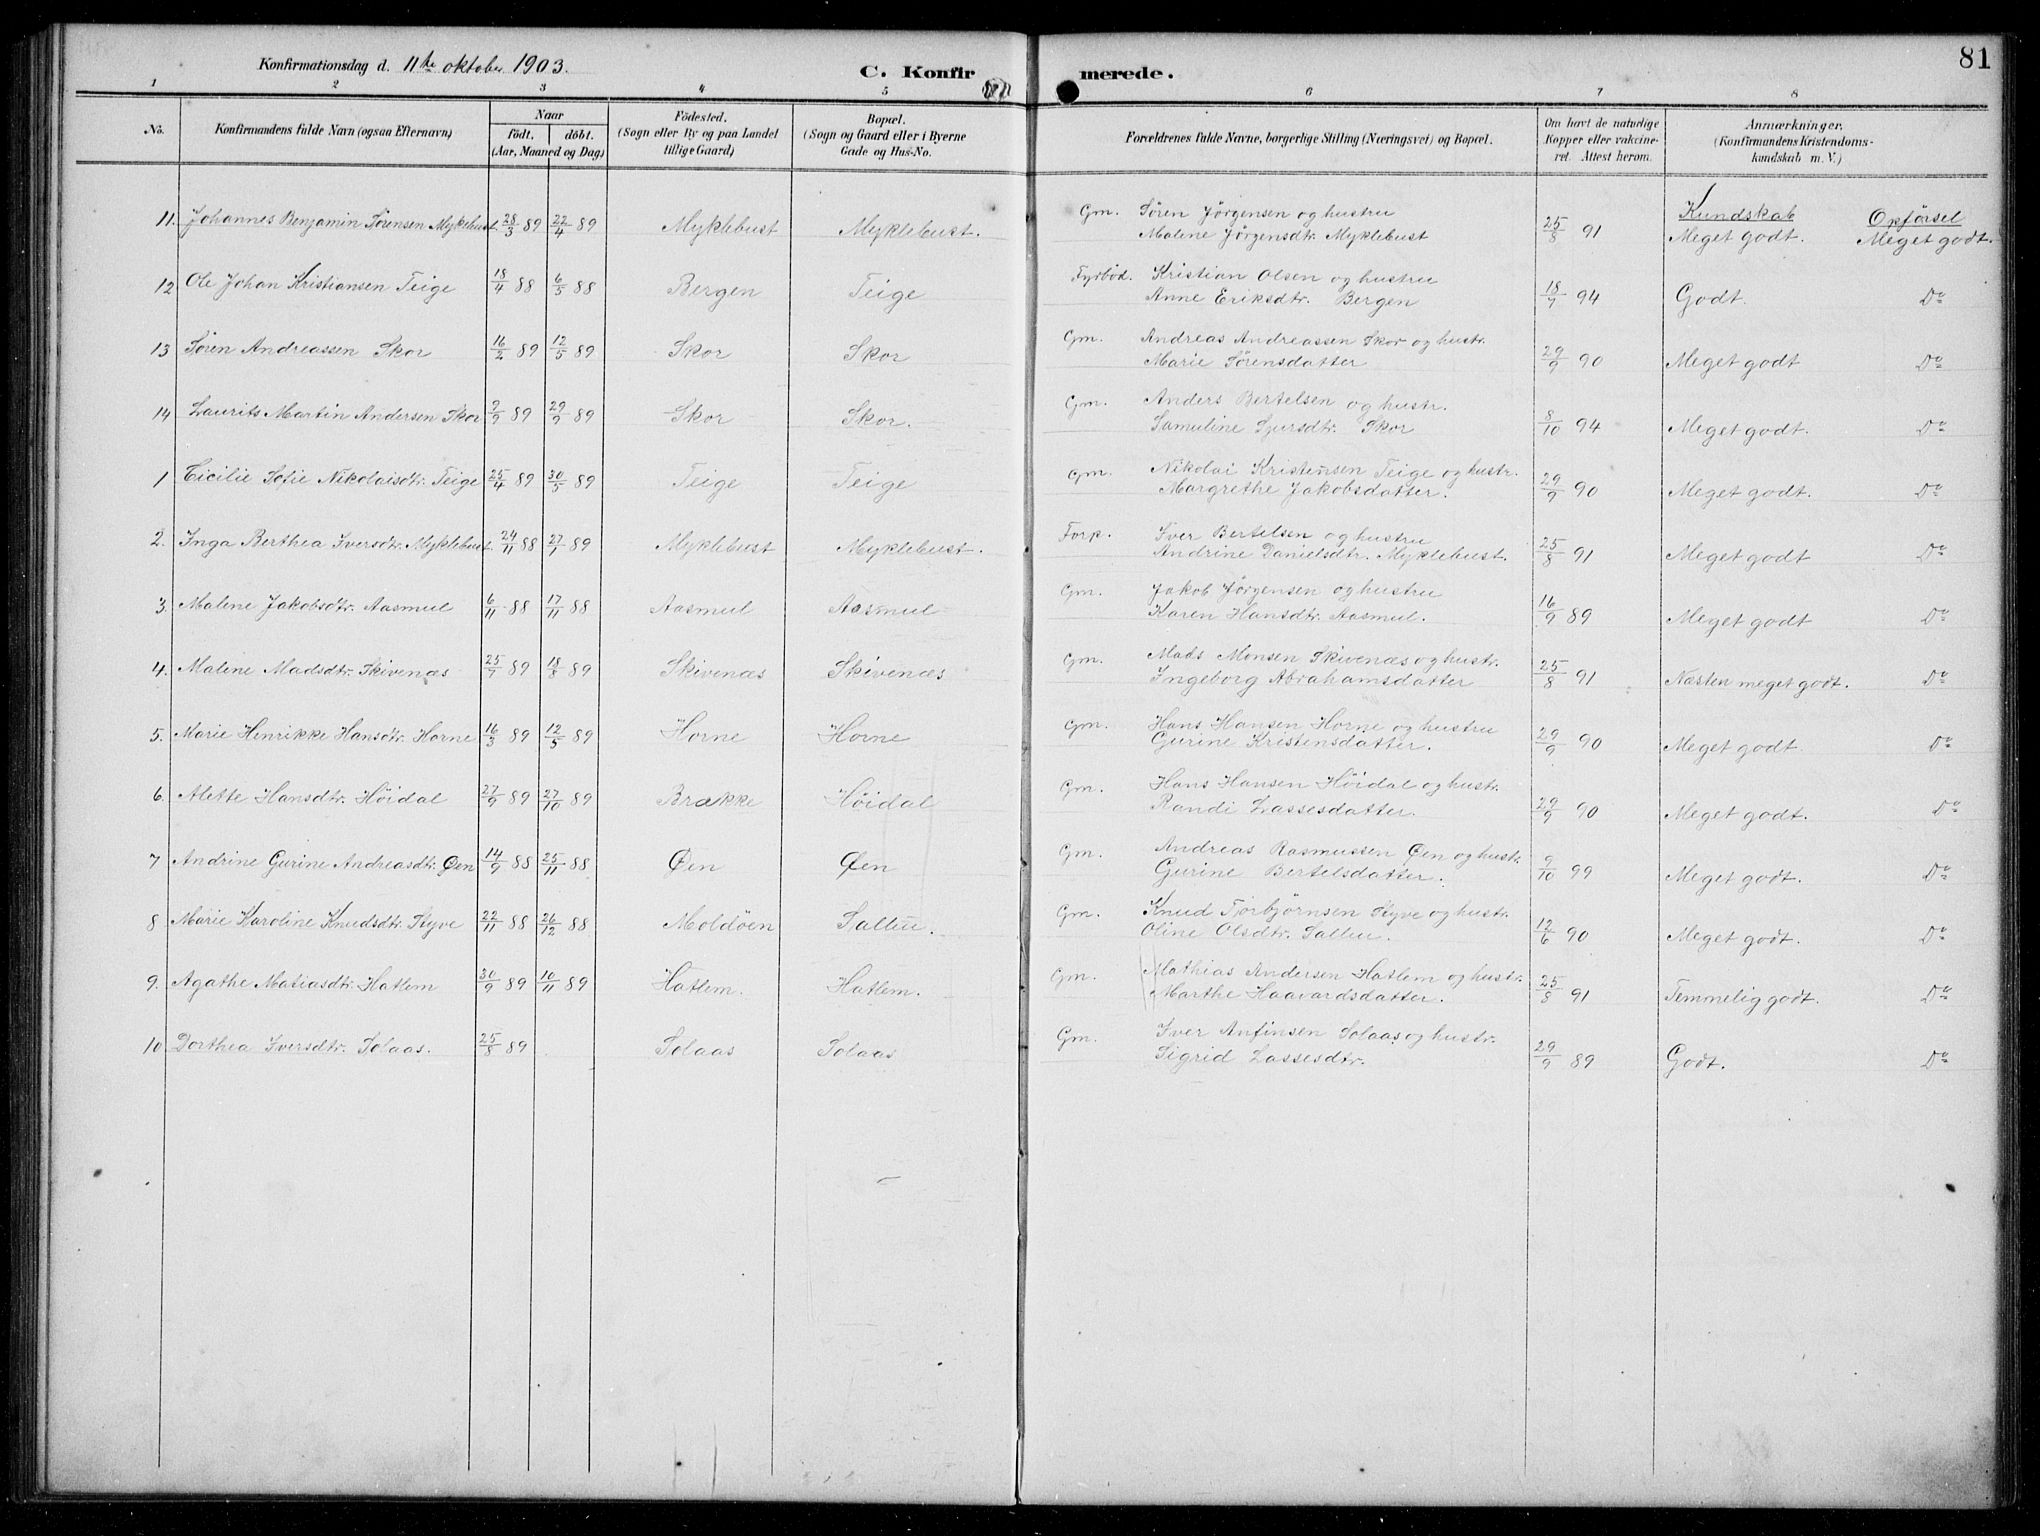 81
Konfirmationsdag d. 11te oktober 1903.
C. Konfirmerede.
1 2 3 4 5 6 7 8
No.
Konfirmandens fulde Navn (ogsaa Efternavn)
Naar
födt. döbt.
(Aar, Maaned og Dag)
Födested.
(Sogn eller By og paa Landet
tillige Gaard)
Bopæl.
(Sogn og Gaard eller i Byerne
Gade og Hus-No.
Forældrenes fulde Navne, borgerlige Stilling (Næringsvei) og Bopæl.
Om havt de naturlige
Kopper eller vakcine-
ret. Attest herom.
Anmærkninger.
(Konfirmandens Kristendoms-
kundskab m. V.)
Kundskab Opførsel
11. Johannes Benjamin Sørensen Myklebust 28/3 89 22/4 89 Myklebust Myklebust. Gm. Sören Jörgensen og hustru
Malene Jörgensdtr. Myklebust 25/8 91 Meget godt. Meget godt.
12 Ole Johan Kristiansen Teige 18/4 88 6/5 88 Bergen Teige Fyrbød. Kristian Olsen og hustru
Anne Eriksdtr. Bergen 18/9 94 Godt. Do
13 Sören Andreassen Skor 16/2 89 12/5 89 Skor Skor Gm. Andreas Andreassen Skor og hustr.
Marie Sörensdatter 29/9 90 Meget godt Do
14 Laurits Martin Andersen Skor 9/9 89 29/9 89 Skor Skor. Gm. Anders Bertelsen og hustr.
Samuline Sjursdtr. Skor 8/10 94 Meget godt. Do
1 Cicilie Sofie Nikolaisdtr. Teige 25/4 89 30/5 89 Teige Teige Gm. Nikolai Kristensen Teige og hustr.
Margrethe Jakobsdatter. 29/9 90 Meget godt. Do
2. Inga Berthea Iversdtr. Myklebust. 24/11 88 27/1 89 Myklebust Myklebust. Forp. Iver Bertelsen og hustru
Andrine Danielsdtr. Myklebust. 25/8 91 Meget godt Do
3. Malene Jakobsdtr. Aasmul 6/11 88 17/11 88 Aasmul Aasmul Gm. Jakob Jörgensen og hustru
Karen Hansdtr. Aasmul. 16/9 89 Meget godt Do
4. Malene Madsdtr. Skivenæs 25/7 89 18/8 89 Skivenæs Skivenæs Gm. Mads Monsen Skivenæs og hustr.
Ingeborg Abrahamsdatter 25/8 91 Næsten meget godt. Do
5. Marie Henrikke Hansdtr. Horne 16/3 89 12/5 89 Horne Horne Gm. Hans Hansen Horne og hustru
Gurine Kristensdatter. 29/9 90 Meget godt. Do
6. Alette Hansdtr. Höidal 27/9 89 27/10 89 Brække Höidal Gm. Hans Hansen Höidal og hustr.
Randi Lassesdatter. 29/9 90 Meget godt. Do
7 Andrine Gurine Andreasdtr. Øen 14/9 88 25/11 88 Øen Øen Gm. Andreas Rasmussen Øen og hustr.
Gurine Bertelsdatter. 9/10 99 Meget godt. Do
8 Marie Karoline Knudsdtr. Styve 22/11 88 26/12 88 Moldöen Sallu. Gm. Knud Torbjörnsen Styve og hustr.
Oline Olsdtr. Sallu. 12/6 90 Meget godt. Do
9. Agathe Matiasdtr. Hatlem 30/9 89 10/11 89 Hatlem. Hatlem. Gm. Mathias Andersen Hatlem og hustr.
Marthe Haavardsdatter. 25/8 91 Temmelig godt. Do
10 Dorthea Iversdtr. Solaas. 25/8 89 Solaas Solaas Gm. Iver Anfinsen Solaas og hustr.
Sigrid Lassesdtr. 29/9 89 Godt. Do